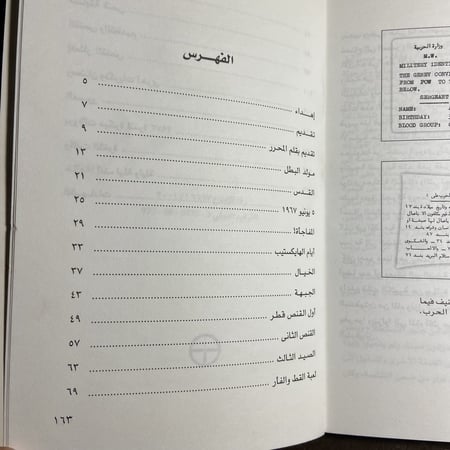 الفهرس
إهداء ٥
تقديم ٧
تقديم بقلم المحرر ٩
مولد البطل ١٣
القدس ٢١
٥ يونيو ١٩٦٧ ٢٥
المفاجأة! ٢٩
أيام الهايكستيب ٣٣
الخيال ٣٧
الجبهة ٤٣
أول القنص قطر ٤٩
القنص الثانى ٥٧
الصيد الثالث ٦٣
لعبة القط والفار ٦٩
١٦٣
وزارة الحربية
M.W.
MILITERY IDENTI
THE GENEY CONV
FROM POW TO
BELOW.
SERGEANT
NAME:
BIRTHDAY:
BLOOD GROUP:
نيف فيما
الحرب.